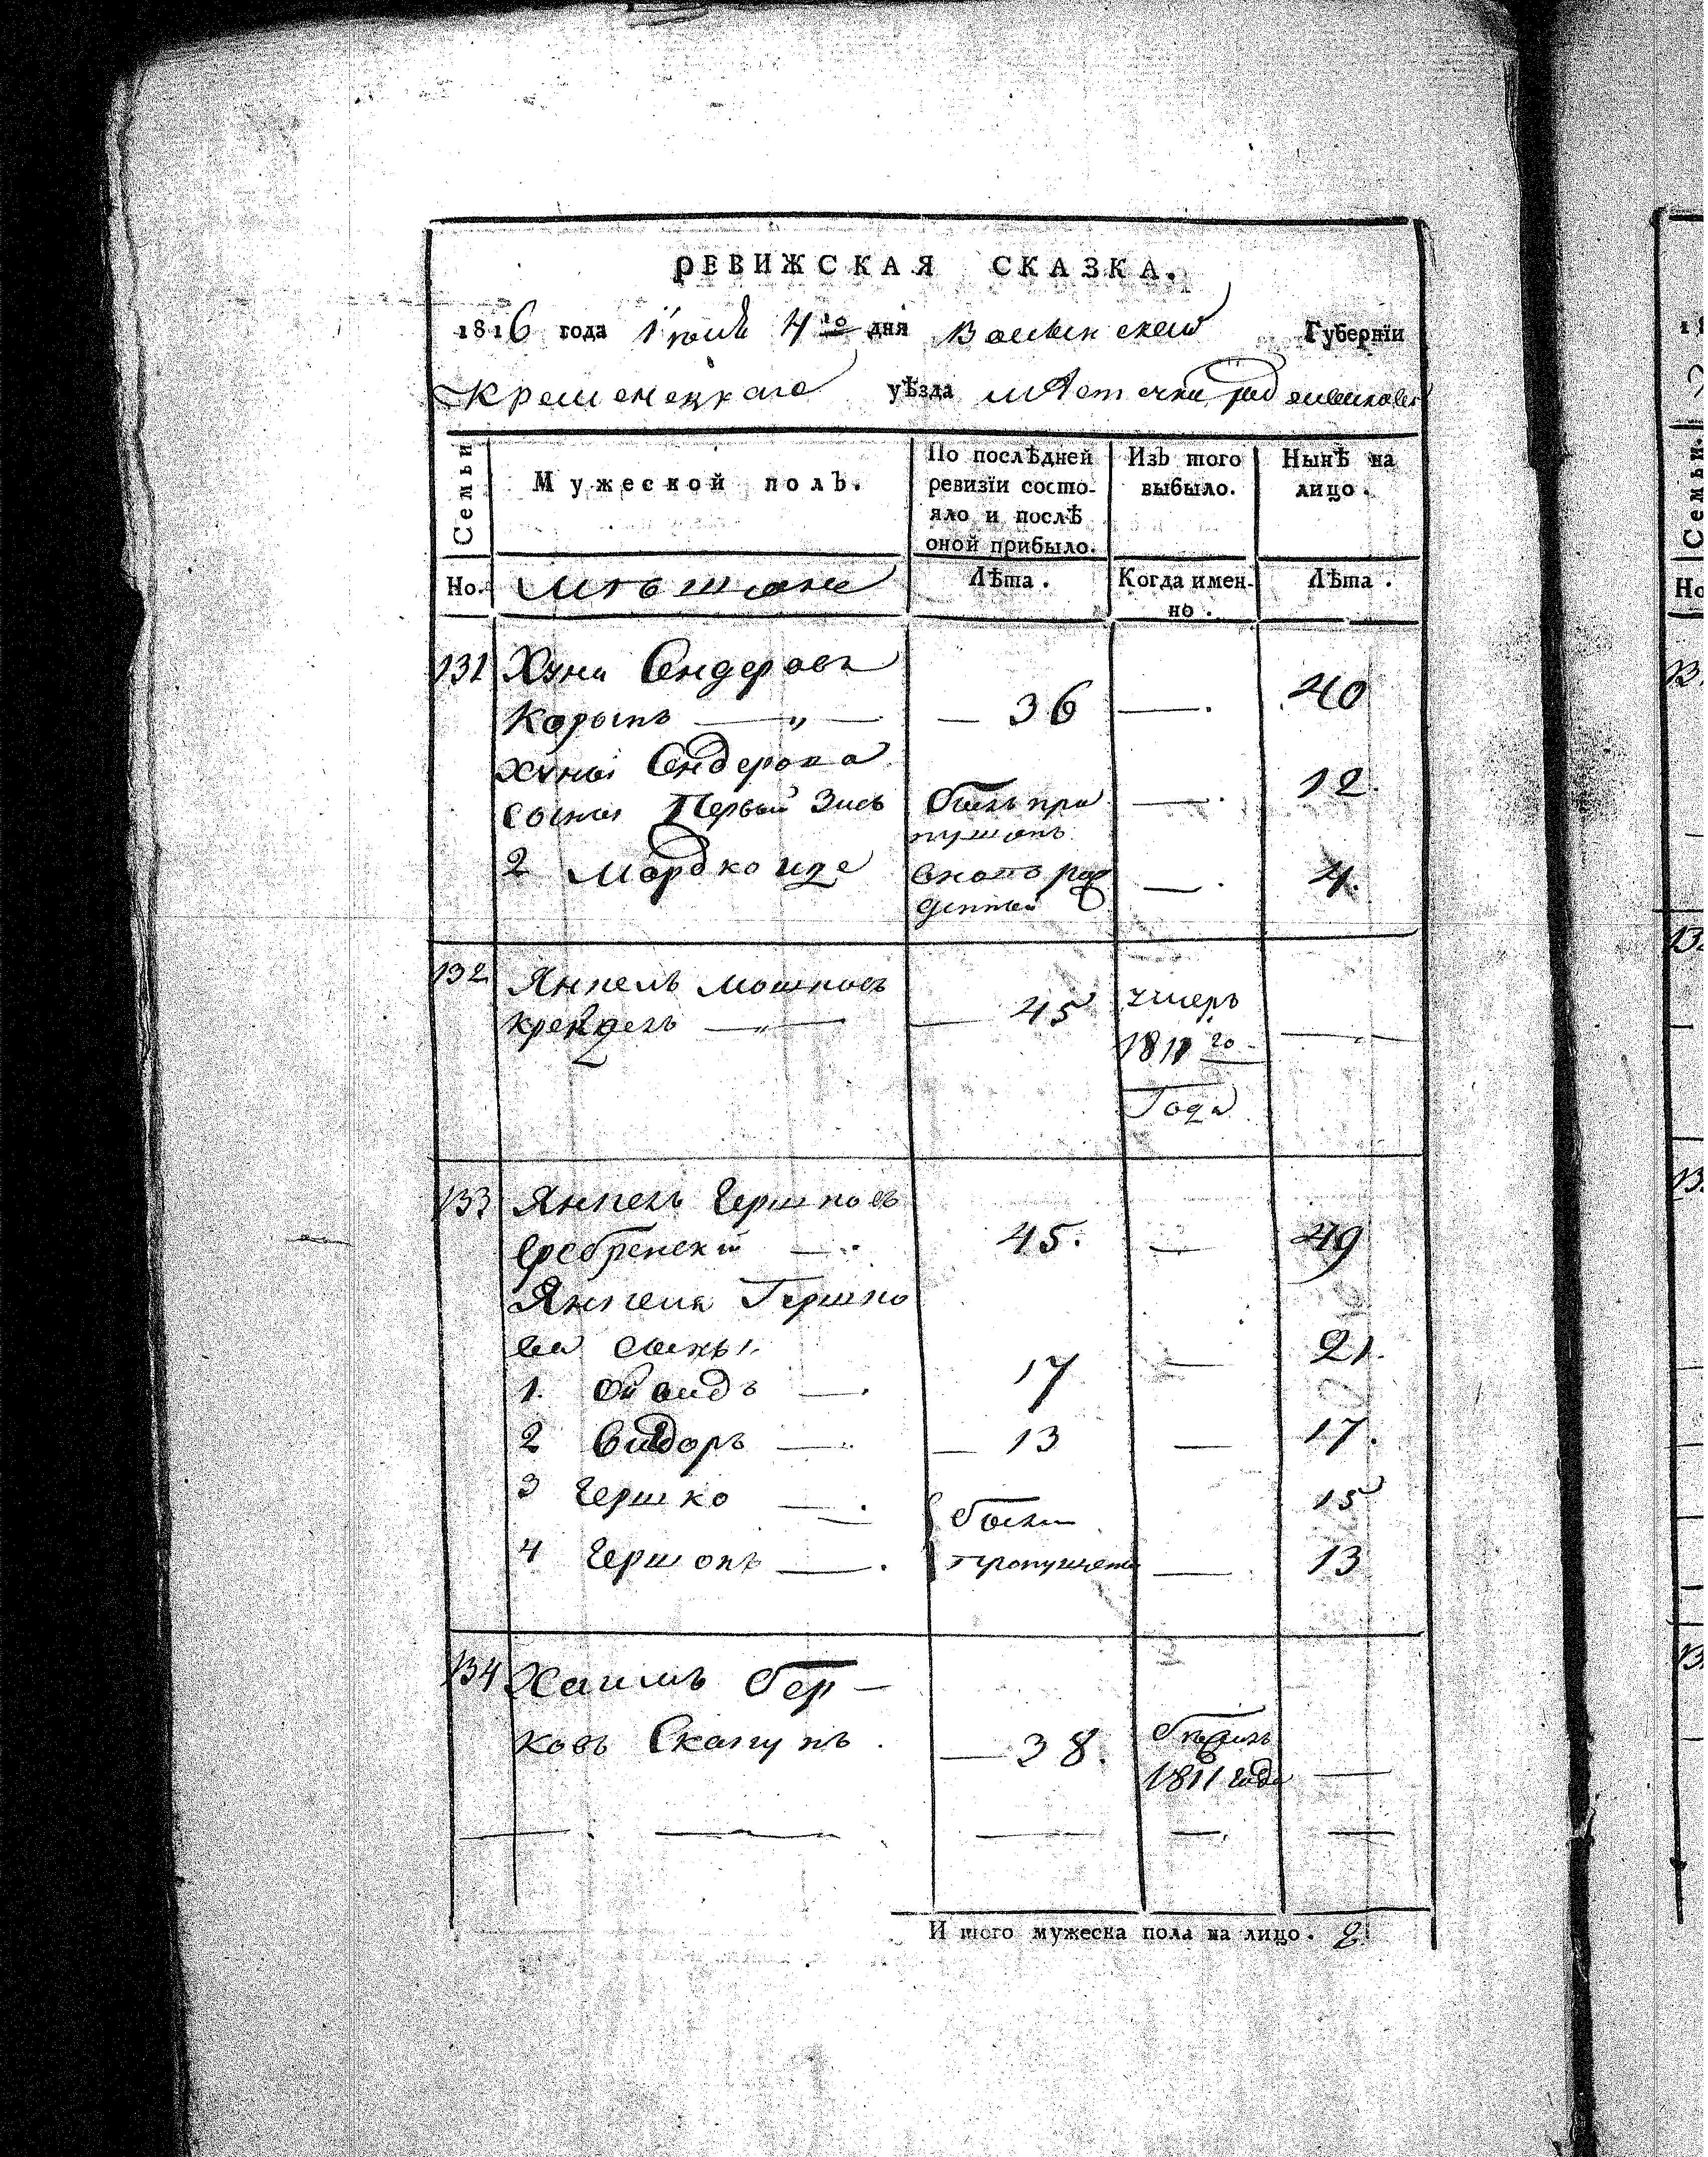 РЕВИЖСКАЯ СКАЗКА.
1816 года Июля 4го дня Волынской Губернїи
Кременецкаго уѣзда мѣстечка
Семьи
Мужеской полъ.
По послѣдней
ревизїи состо-
яло и послѣ
оной прибыло.
Изъ того
выбыло.
Нынѣ на
лицо.
Но.
мѣщане
Лѣта.
Когда имен-
но.
Лѣта.
131 Хуна Сендеровъ
Корыпъ — 36 — 40
Хуны Сендерова
сыны Первый Зись былъ про — 12.
пущенъ
2 Мордко Иде вново рож — 4.
денный
132 Янкель Мошковъ
Крейдель — 45 умеръ —
1811 го
Года
133 Янкель Гершковъ
Сребренскій 45. — 49
Янкеля Гершко
ва сыны
1. Ойвидъ 17 — 21.
2 Сидоръ — 13 — 17.
3 Гершко были 15
4 Гершонъ пропущены — 13
134 Хаимъ Бер-
ковъ Скакунъ — 38. —
1811 года
И того мужеска пола на лицо. 8